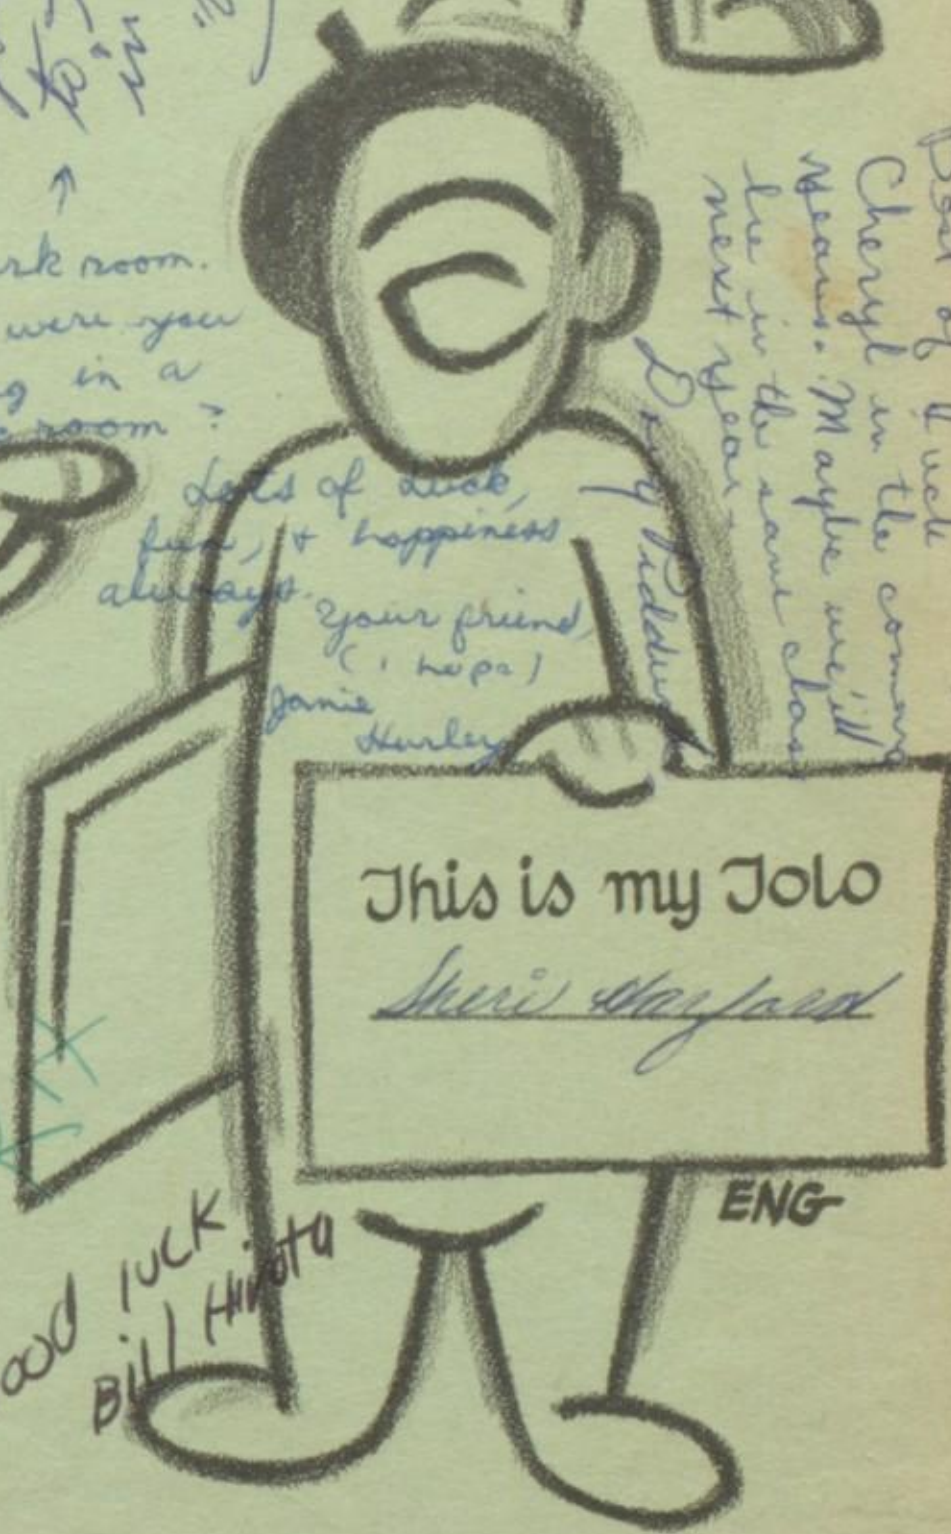 rk room.
were you
g in a
room?
Lots of Luck,
fun, + happiness
always.
Your friend,
(i hope)
Jamie
Hurley
Best of luck
Cheryl in the coming
years. Maybe we'll
be in the same class
next year.
This is my Tolo
Sheri Hayford
ENG
ood luck
Bill Hirota